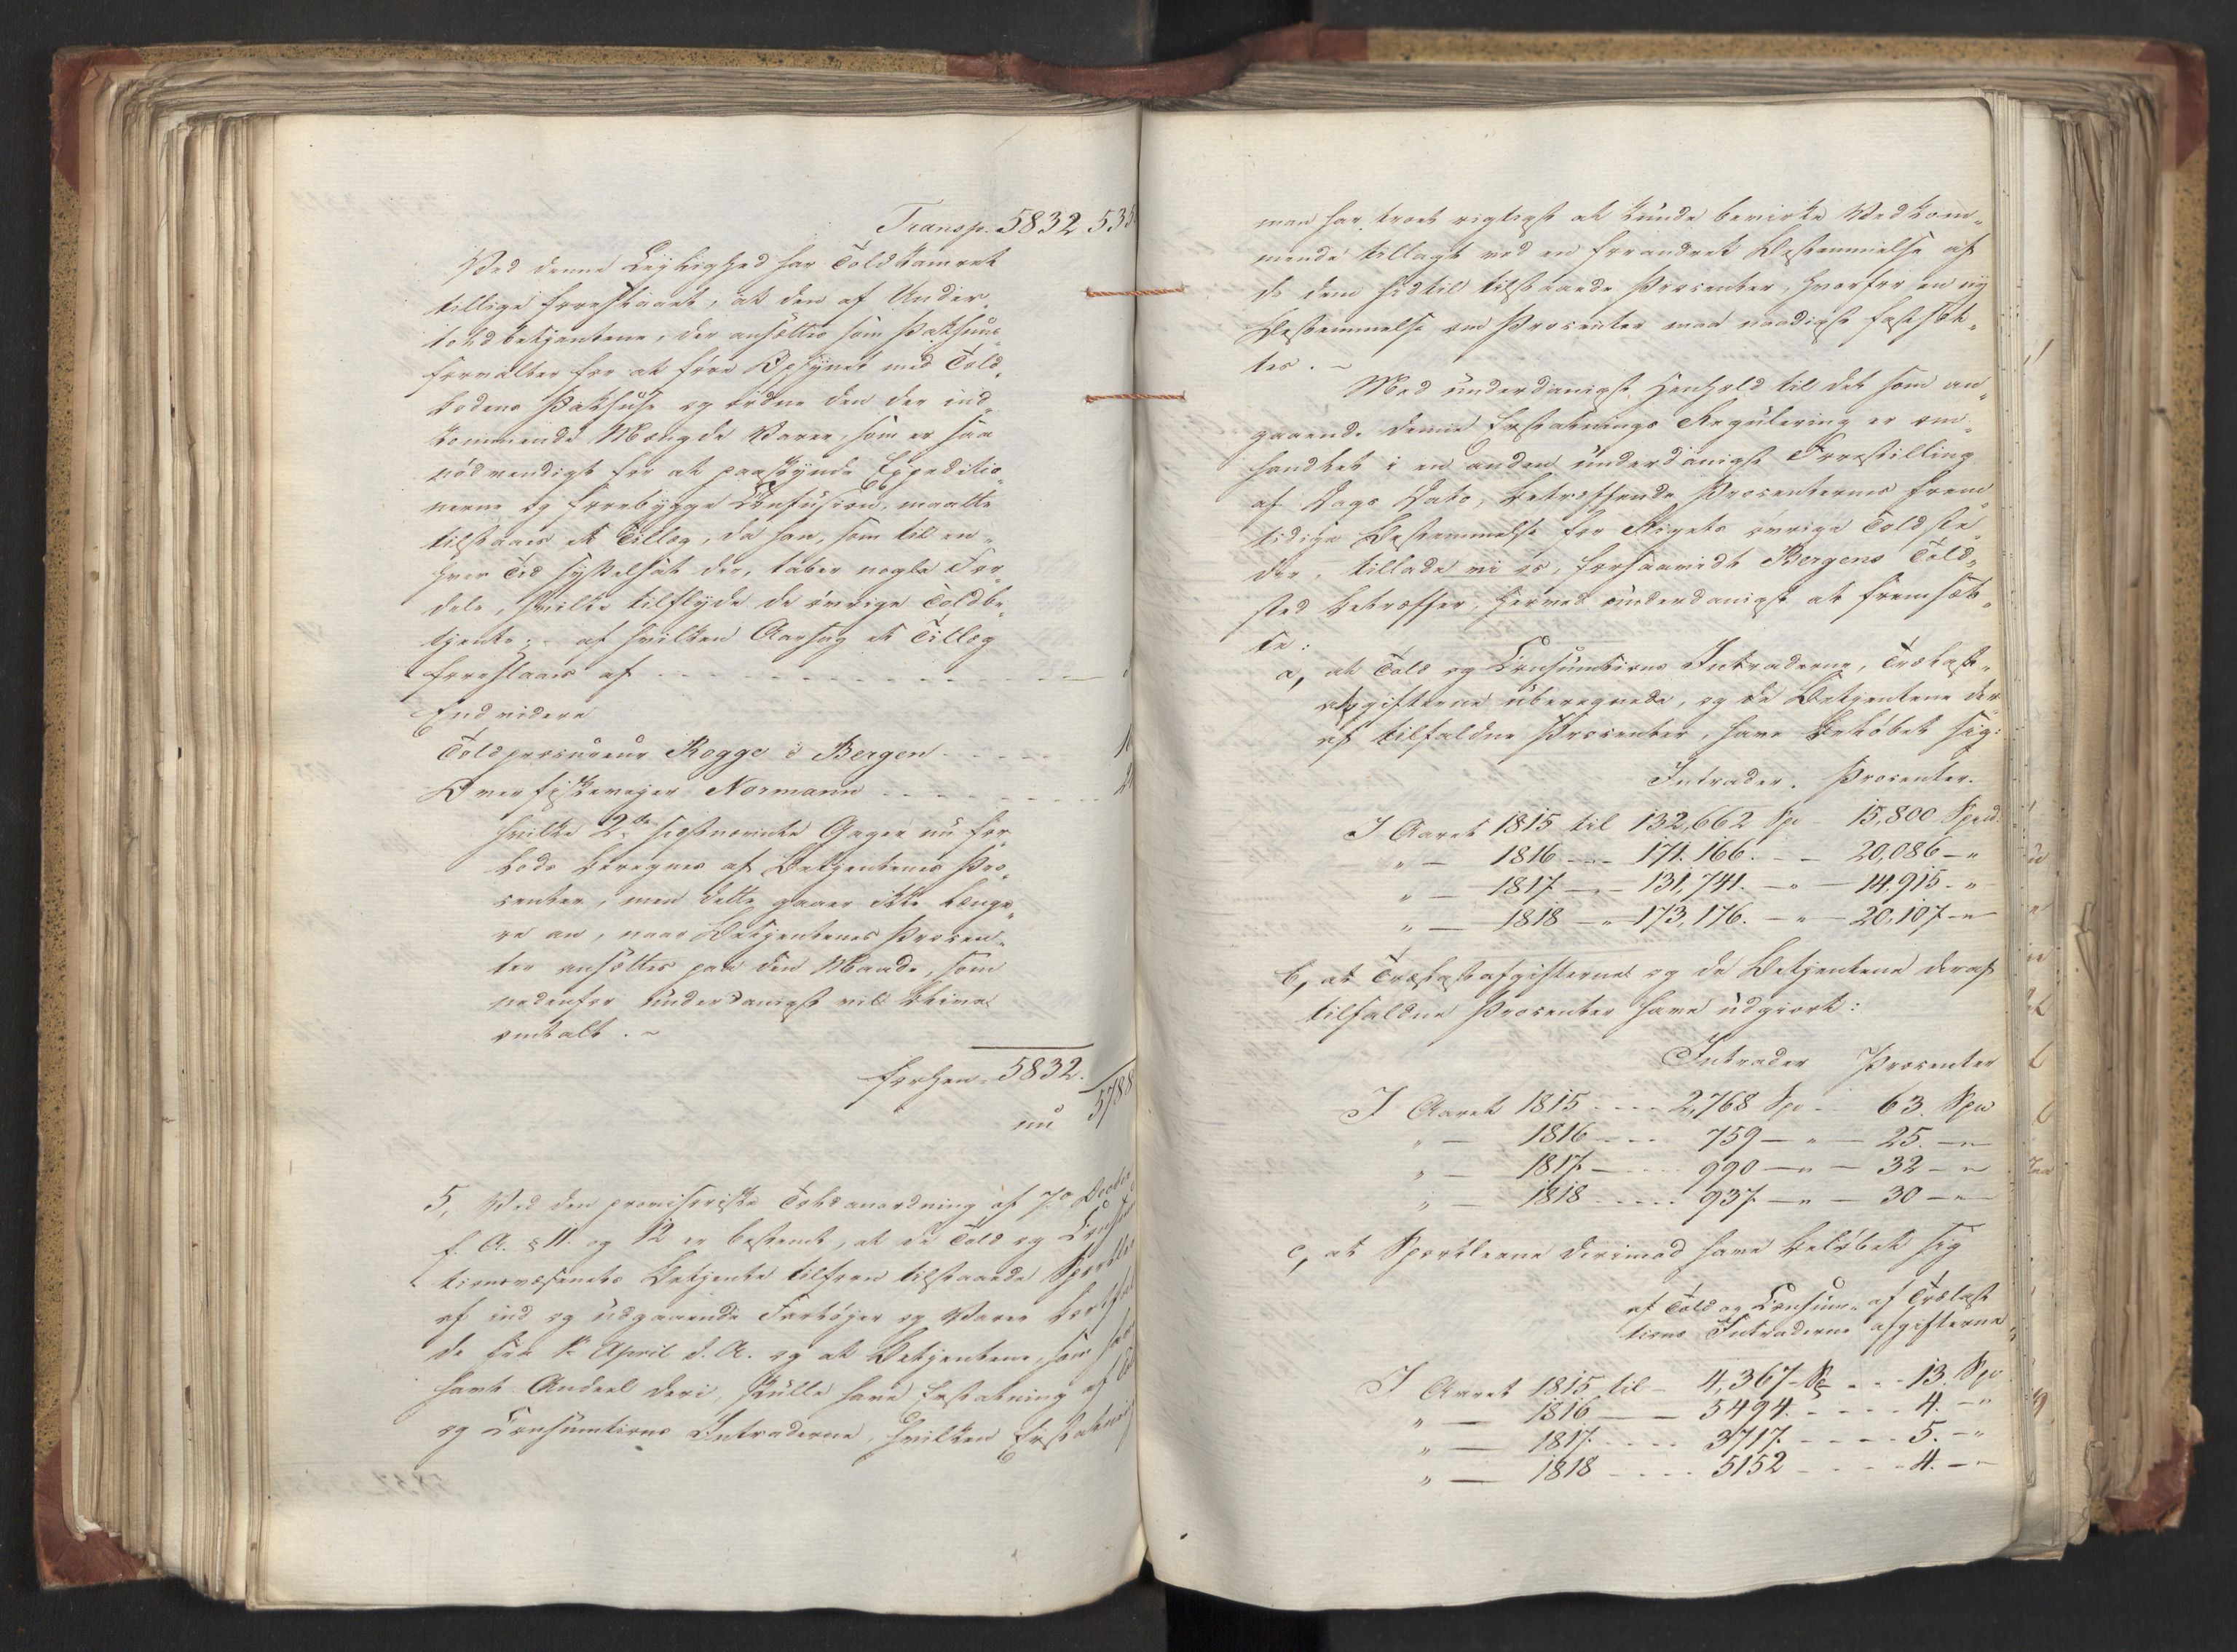 Transp. 5832 535
Ved denne Leylighed har Toldkamret
tillige foreslaaet, at den af Under„
toldbetjentene, der ansættes som Pakhuus„
forvalter for at føre Opsynet med Told„
bodens Pakhuse og ordne den der ind„
kommende Mængde Varer, som er saa
nødvendigt for at paaskynde Expeditio„
nerne og forebygge Confusion, maatte
tilstaaes et Tillæg, da han, som til en„
hver Tid sysselsat der, taber nogle For„
dele, hvilke tilflyde de øvrige Toldbe„
tjente; af hvilken Aarsag et Tillæg
foreslaaes af
End videre
Toldprocureur Rogge i Bergen
Overfiskeveyer Normann
hvilke 2de sidstnævnte Gager nu for„
lods beregnes af Betjentenes Pro„
center, men dette gaaer ikke længe„
re an, naar Betjentenes Procen„
ter ansættes paa den Maade, som
nedenfor underdanigst vil blive
omtalt. ~
forhen 5832.
nu 5788
5, Ved den provisoriske Toldanordning af 7de Decbr
f. A. § 11 og 12 er bestemt, at de Told og Consum
tionsvæsenets Betjente tilforn tilstaaede Sportler
af ind og udgaaende Fartøjer og Varer bortfal
de fra 1te April d. A. og at Betjentene, som have
havt Andeel deri, skulle have Erstatning af Told
og Consumtions Intraderne, hvilken Erstatning
man har troet rigtigst at kunde bevirke Vedkom„
mende tillagt ved en forandret Bestemmelse af
de dem hidtil tilstaaede Procenter, hvorfor en ny
Bestemmelse om Procenter maa naadigst fastsæt„
tes. ~
Med underdanigst Henhold til det som an„
gaaende denne Erstatnings Regulering er om„
handlet i en anden underdanigst Forestilling
af Dags Dato, betræffende Procenternes frem„
tidige Bestemmelse for Rigets øvrige Toldste„
der, tillade vi os, forsaavidt Bergens Told„
sted betræffer, herved underdanigst at fremsæt„
te:
a, at Told og Consumtions Intraderne, Trælast„
afgifterne uberegnede, og de Betjentene der
af tilfaldne Procenter, have beløbet sig:
Intrader. Procenter.
I Aaret 1815 til 132,662 Sp - 15,800 Specd.
„ — 1816 - - 171.166. - - 20,086 - „
„ — 1817 - - 131,741. - „ - 14,915 - „
„ — 1818 - „ 173,176. - „ - 20,107 - „
b, at Trælastafgifterne og de Betjentene deraf
tilfaldne Procenter have udgjort:
Intrader Procenter
I Aaret 1815 - - - 2,768 Sp - 63. Spd
„ — 1816 - - - 759 - „ - 25. - „
„ — 1817 - - - 990 - „ - 32 - „
„ — 1818 - - - 937 - „ - 30 - „
c, at Sportlerne derimod have beløbet sig
af Told og Consum„ af Trælast
tions Intraderne afgifterne
I Aaret 1815 til - 4,367 Sp - - - 13. Spd
„ — 1816 — 5494. - - - 4. - „
„ — 1817 - - - 3717. - - - 5. - „
„ — 1818 - - - 5152 - - - 4. - „